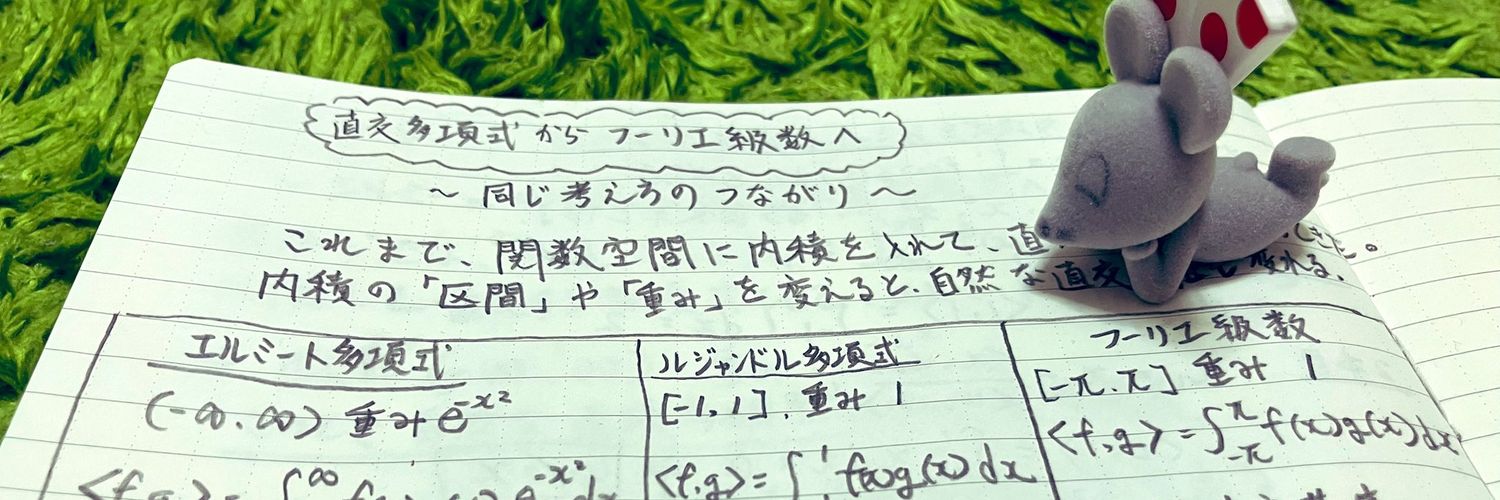 直交多項式から フーリエ級数へ
～ 同じ考え方のつながり ～
これまで、関数空間に内積を入れて、直 てきた。
内積の「区間」や「重み」を変えると、自然な直交 変れる。
エルミート多項式
(-∞, ∞) 重み e^{-x^2}
<f, g> = ∫^∞ e^{-x^2} dx
ルジャンドル多項式
[-1, 1], 重み 1
<f, g> = ∫^1 f(x)g(x) dx
フーリエ級数
[-π, π] 重み 1
<f, g> = ∫_{-π}^{π} f(x)g(x)dx